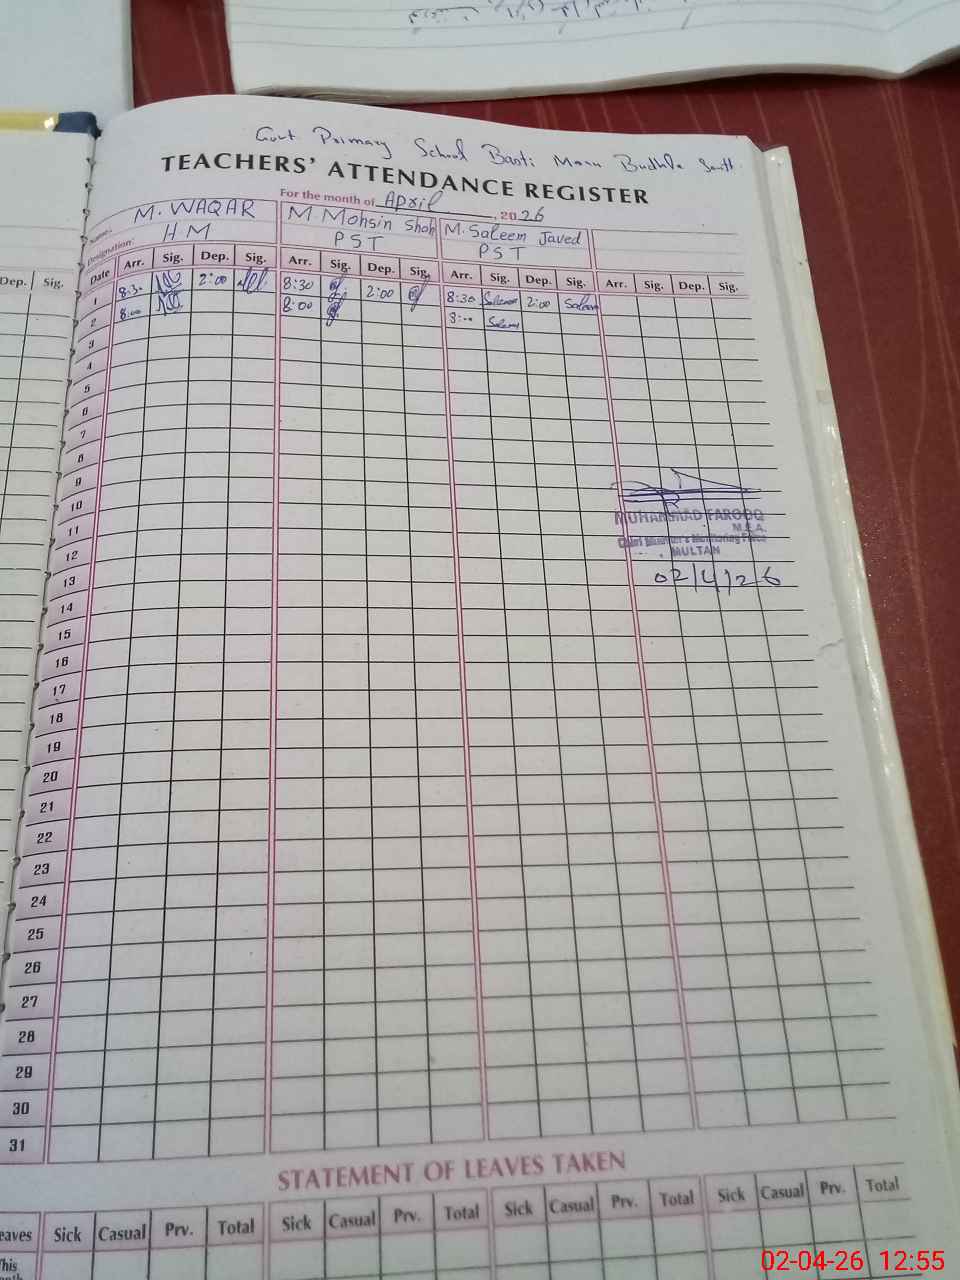 Govt Primary School Basti Manu Budhla Santt
TEACHERS' ATTENDANCE REGISTER
For the month of April, 2026
Name: M. WAQAR M. Mohsin Shah M. Saleem Javed
Designation: HM PST PST
Dep. Sig. Date Arr. Sig. Dep. Sig. Arr. Sig. Dep. Sig. Arr. Sig. Dep. Sig. Arr. Sig. Dep. Sig.
1 8:30 2:00 8:30 2:00 8:30 Saleem 2:00 Saleem
2 8:00 8:00 8:00 Saleem
3
4
5
6
7
8
9
10
11
12
13
14
15
16
17
18
19
20
21
22
23
24
25
26
27
28
29
30
31
MUHAMMAD FAROOQ
M.E.A.
Chief Minister's Monitoring Force
MULTAN
02/4/26
STATEMENT OF LEAVES TAKEN
eaves Sick Casual Prv. Total Sick Casual Prv. Total Sick Casual Prv. Total Sick Casual Prv. Total
This
02-04-26 12:55